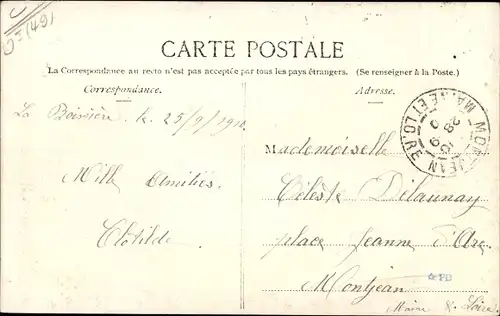 (49)
CARTE POSTALE
La Correspondance au recto n'est pas acceptée par tous les pays étrangers. (Se renseigner à la Poste.)
Correspondance.
Adresse.
La Boissière le 25/9/1910
Mille Amitiés
Clotilde
MONTJEAN
MAINE ET LOIRE
28
9
10
Mademoiselle
Céleste Delaunay
place Jeanne d'Arc
Montjean
PB
Maine & Loire